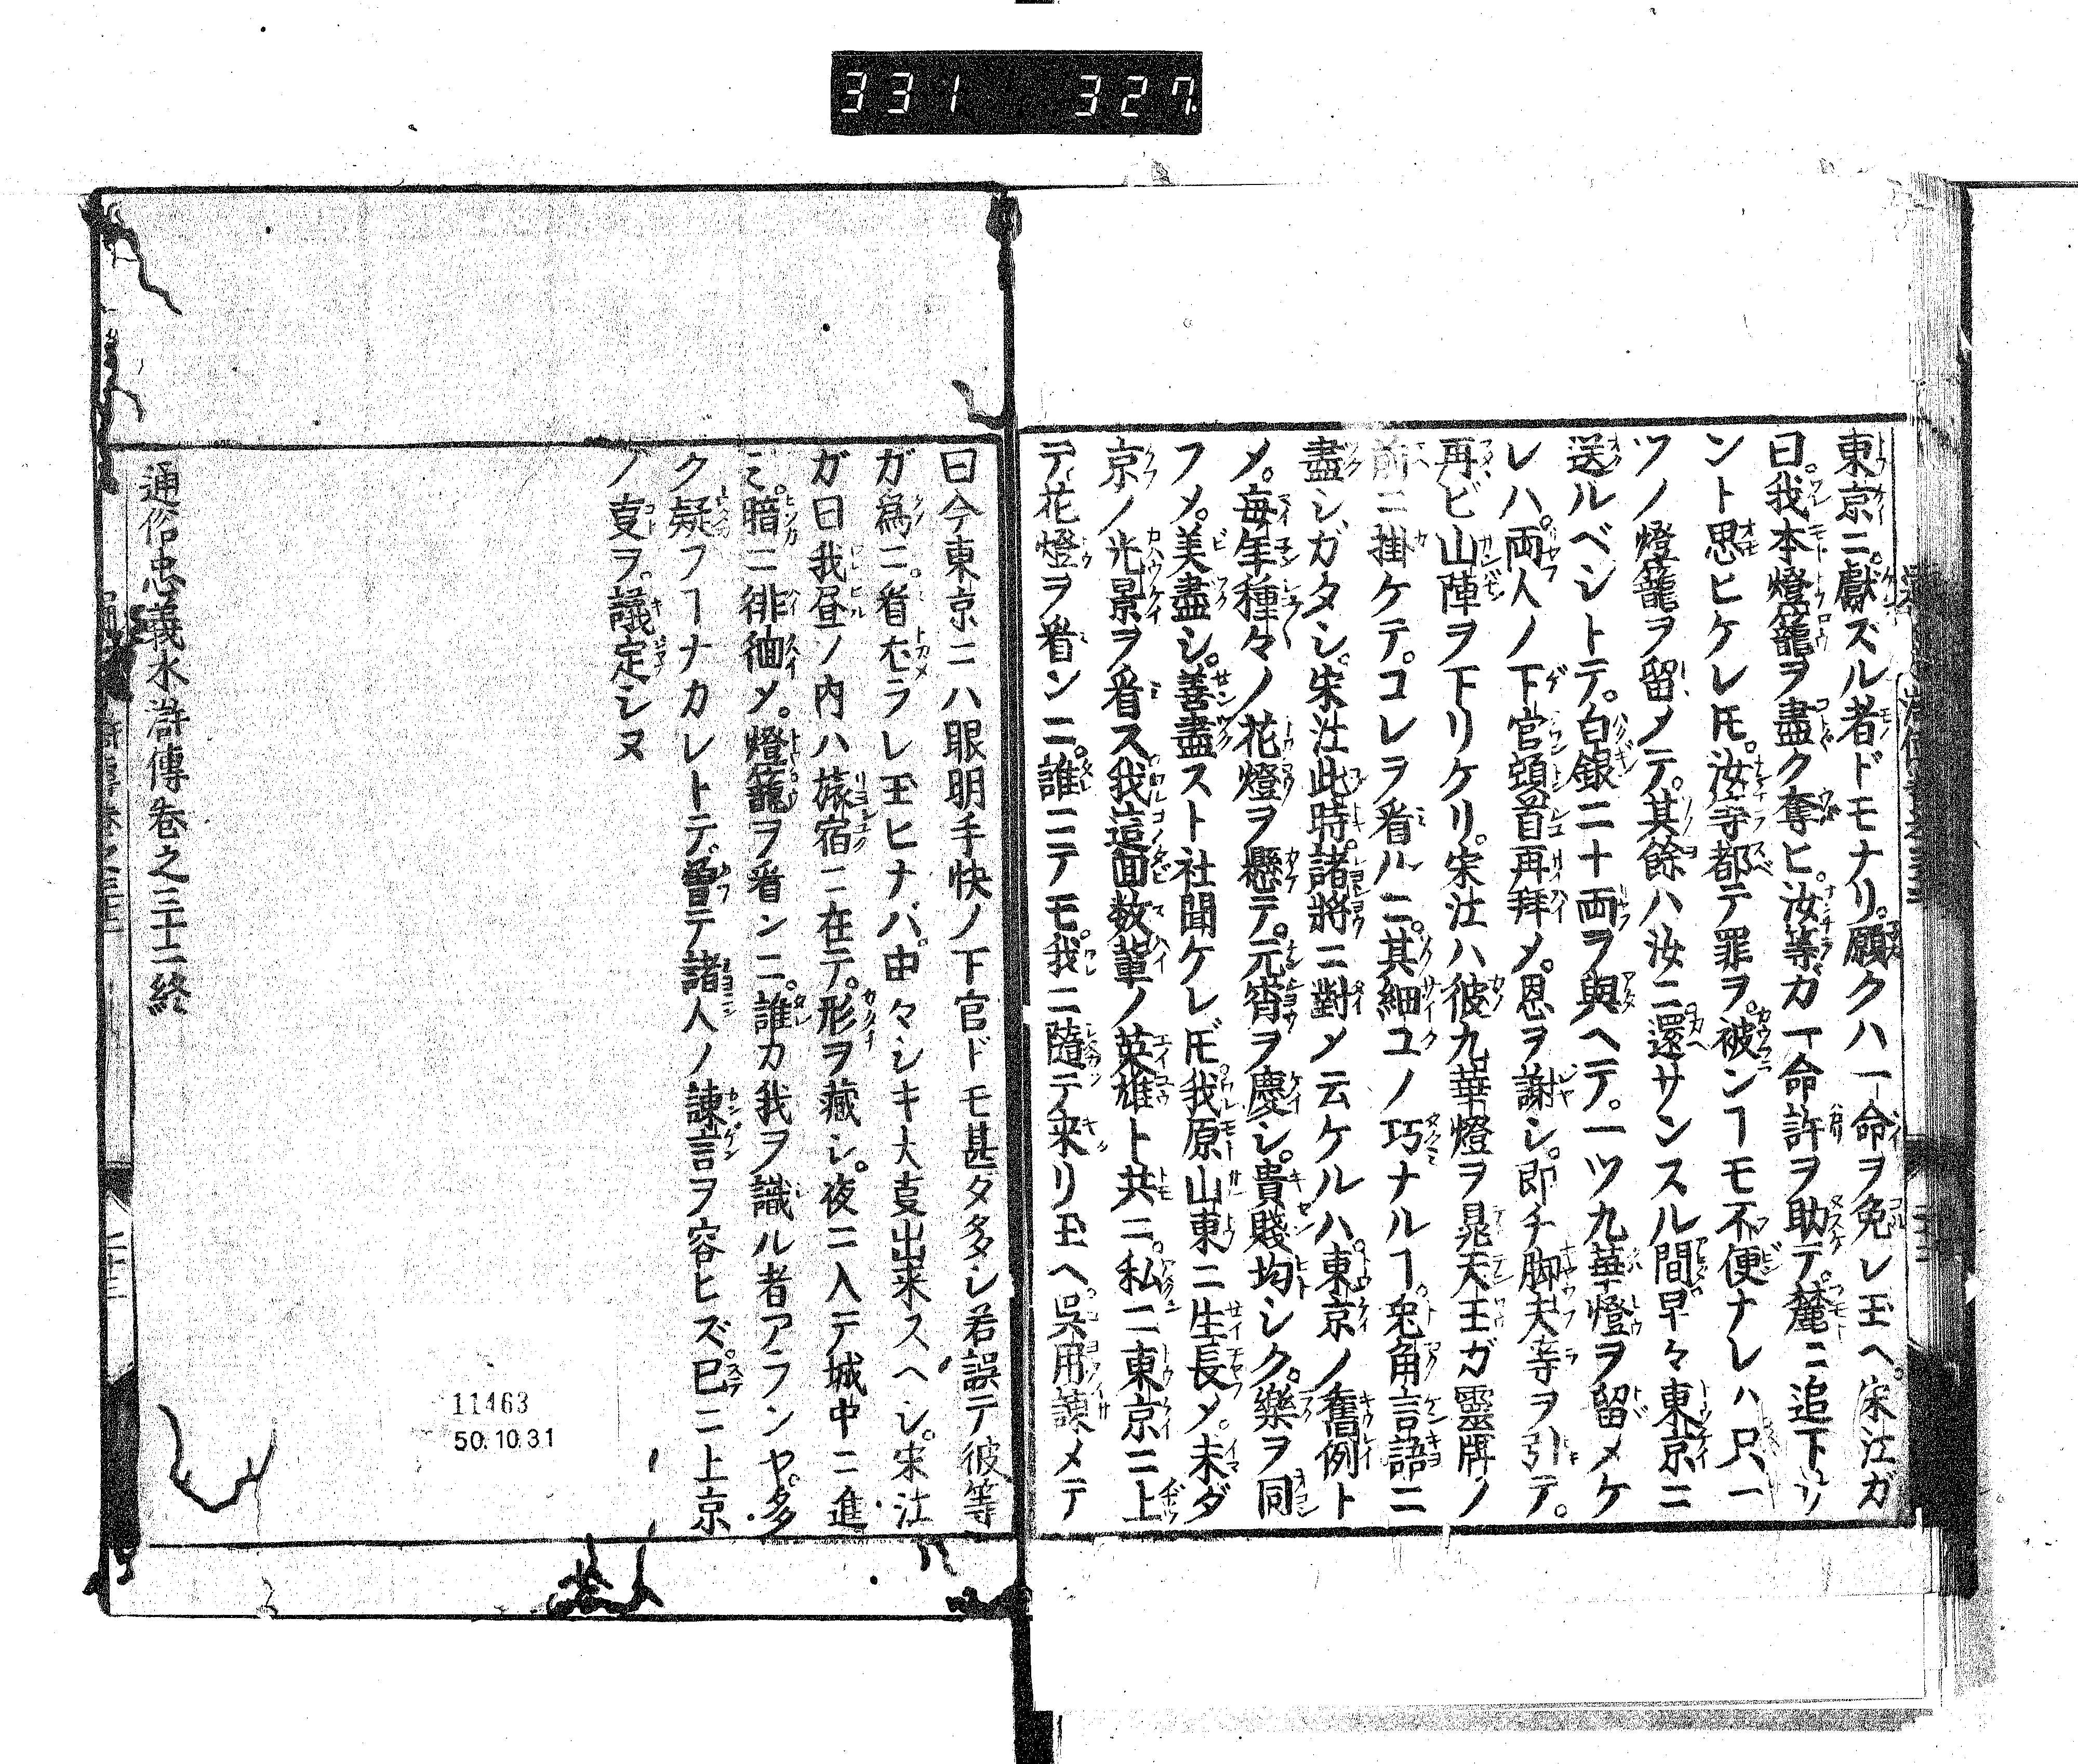 331 327
東京ニ。獻ズル者ドモナリ。願クハ一命ヲ免レ玉ヘ。宋江ガ
曰。我本燈籠ヲ盡ク奪ヒ。汝等ガ一命許ヲ助テ。麓ニ追下ソ
ント思ヒケレ𪜈。汝等都テ罪ヲ。被ンヿモ不便ナレハ只一
ツノ燈籠ヲ留メテ。其餘ハ汝ニ還サンスル間早々東京ニ
送ルベシトテ。白銀二十両ヲ與ヘテ。一ツ九華燈ヲ留メケ
レハ。両人ノ下官頭首再拜メ。恩ヲ謝シ。即チ脚夫等ヲ引テ。
再ビ山陣ヲ下リケリ。宋江ハ彼九華燈ヲ晁天王ガ靈牌ノ
前ニ掛ケテ。コレヲ看ルニ。其細工ノ巧ナルヿ。兎角言語ニ
盡シガタシ。宋江此時。諸將ニ對メ云ケルハ。東京ノ舊例ト
メ。毎年種々ノ花燈ヲ懸テ。元宵ヲ慶シ。貴賤均シク。樂ヲ同
フメ。美盡シ。善盡スト社聞ケレ𪜈。我原山東ニ生長メ。未ダ
京ノ光景ヲ看ス我這回数輩ノ英雄ト共ニ。私ニ東京ニ上
テ花燈ヲ看ンニ。誰ニテモ。我ニ隨テ来リ玉ヘ。呉用諫メテ
曰今東京ニハ眼明手快ノ下官ドモ甚タ多シ若誤テ彼等
ガ為ニ。看咎ラレ玉ヒナバ。由々シキ大叓出来スヘシ。宋江
ガ曰我昼ノ内ハ旅宿ニ在テ。形ヲ藏シ。夜ニ入テ城中ニ進
ミ。暗ニ徘徊メ。燈籠ヲ看ンニ。誰カ我ヲ識ル者アランヤ。多
ク疑フヿナカレトテ。曾テ諸人ノ諫言ヲ容ヒズ已ニ上京
ノ叓ヲ。議定シヌ
通俗忠義水滸傳巻之三十二終
11463
50.10.31